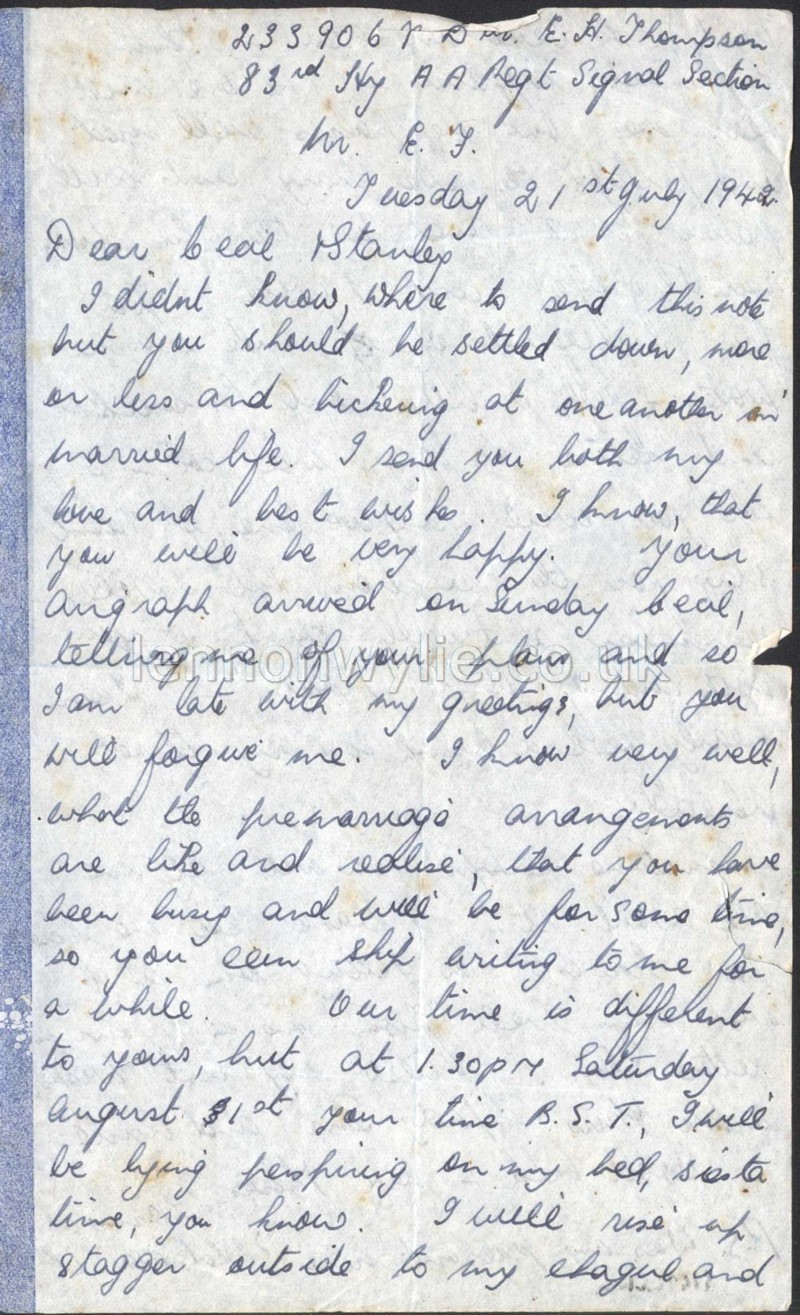 2339067 Dvr. E. H. Thompson
83rd Hy A A Regt Signal Section
M. E. F.
Tuesday 21st July 1942
Dear Cecil & Stanley
I didnt know, where to send this note
but you should be settled down, more
or less and bickering at one another in
married life. I send you both my
love and best wishes. I know, that
you will be very happy. Your
airgraph arrived on Sunday Cecil,
telling me of your plans and so
I am late with my greetings, but you
will forgive me. I know very well,
what the premarriage arrangements
are like and realise, that you have
been busy and will be for some time,
so you can skip writing to me for
a while. Our time is different
to yours, but at 1.30pm Saturday
August 1st your time B.S.T., I will
be lying perspiring on my bed, siesta
time, you know. I will rise up
stagger outside to my chagul and
lennonwylie.co.uk